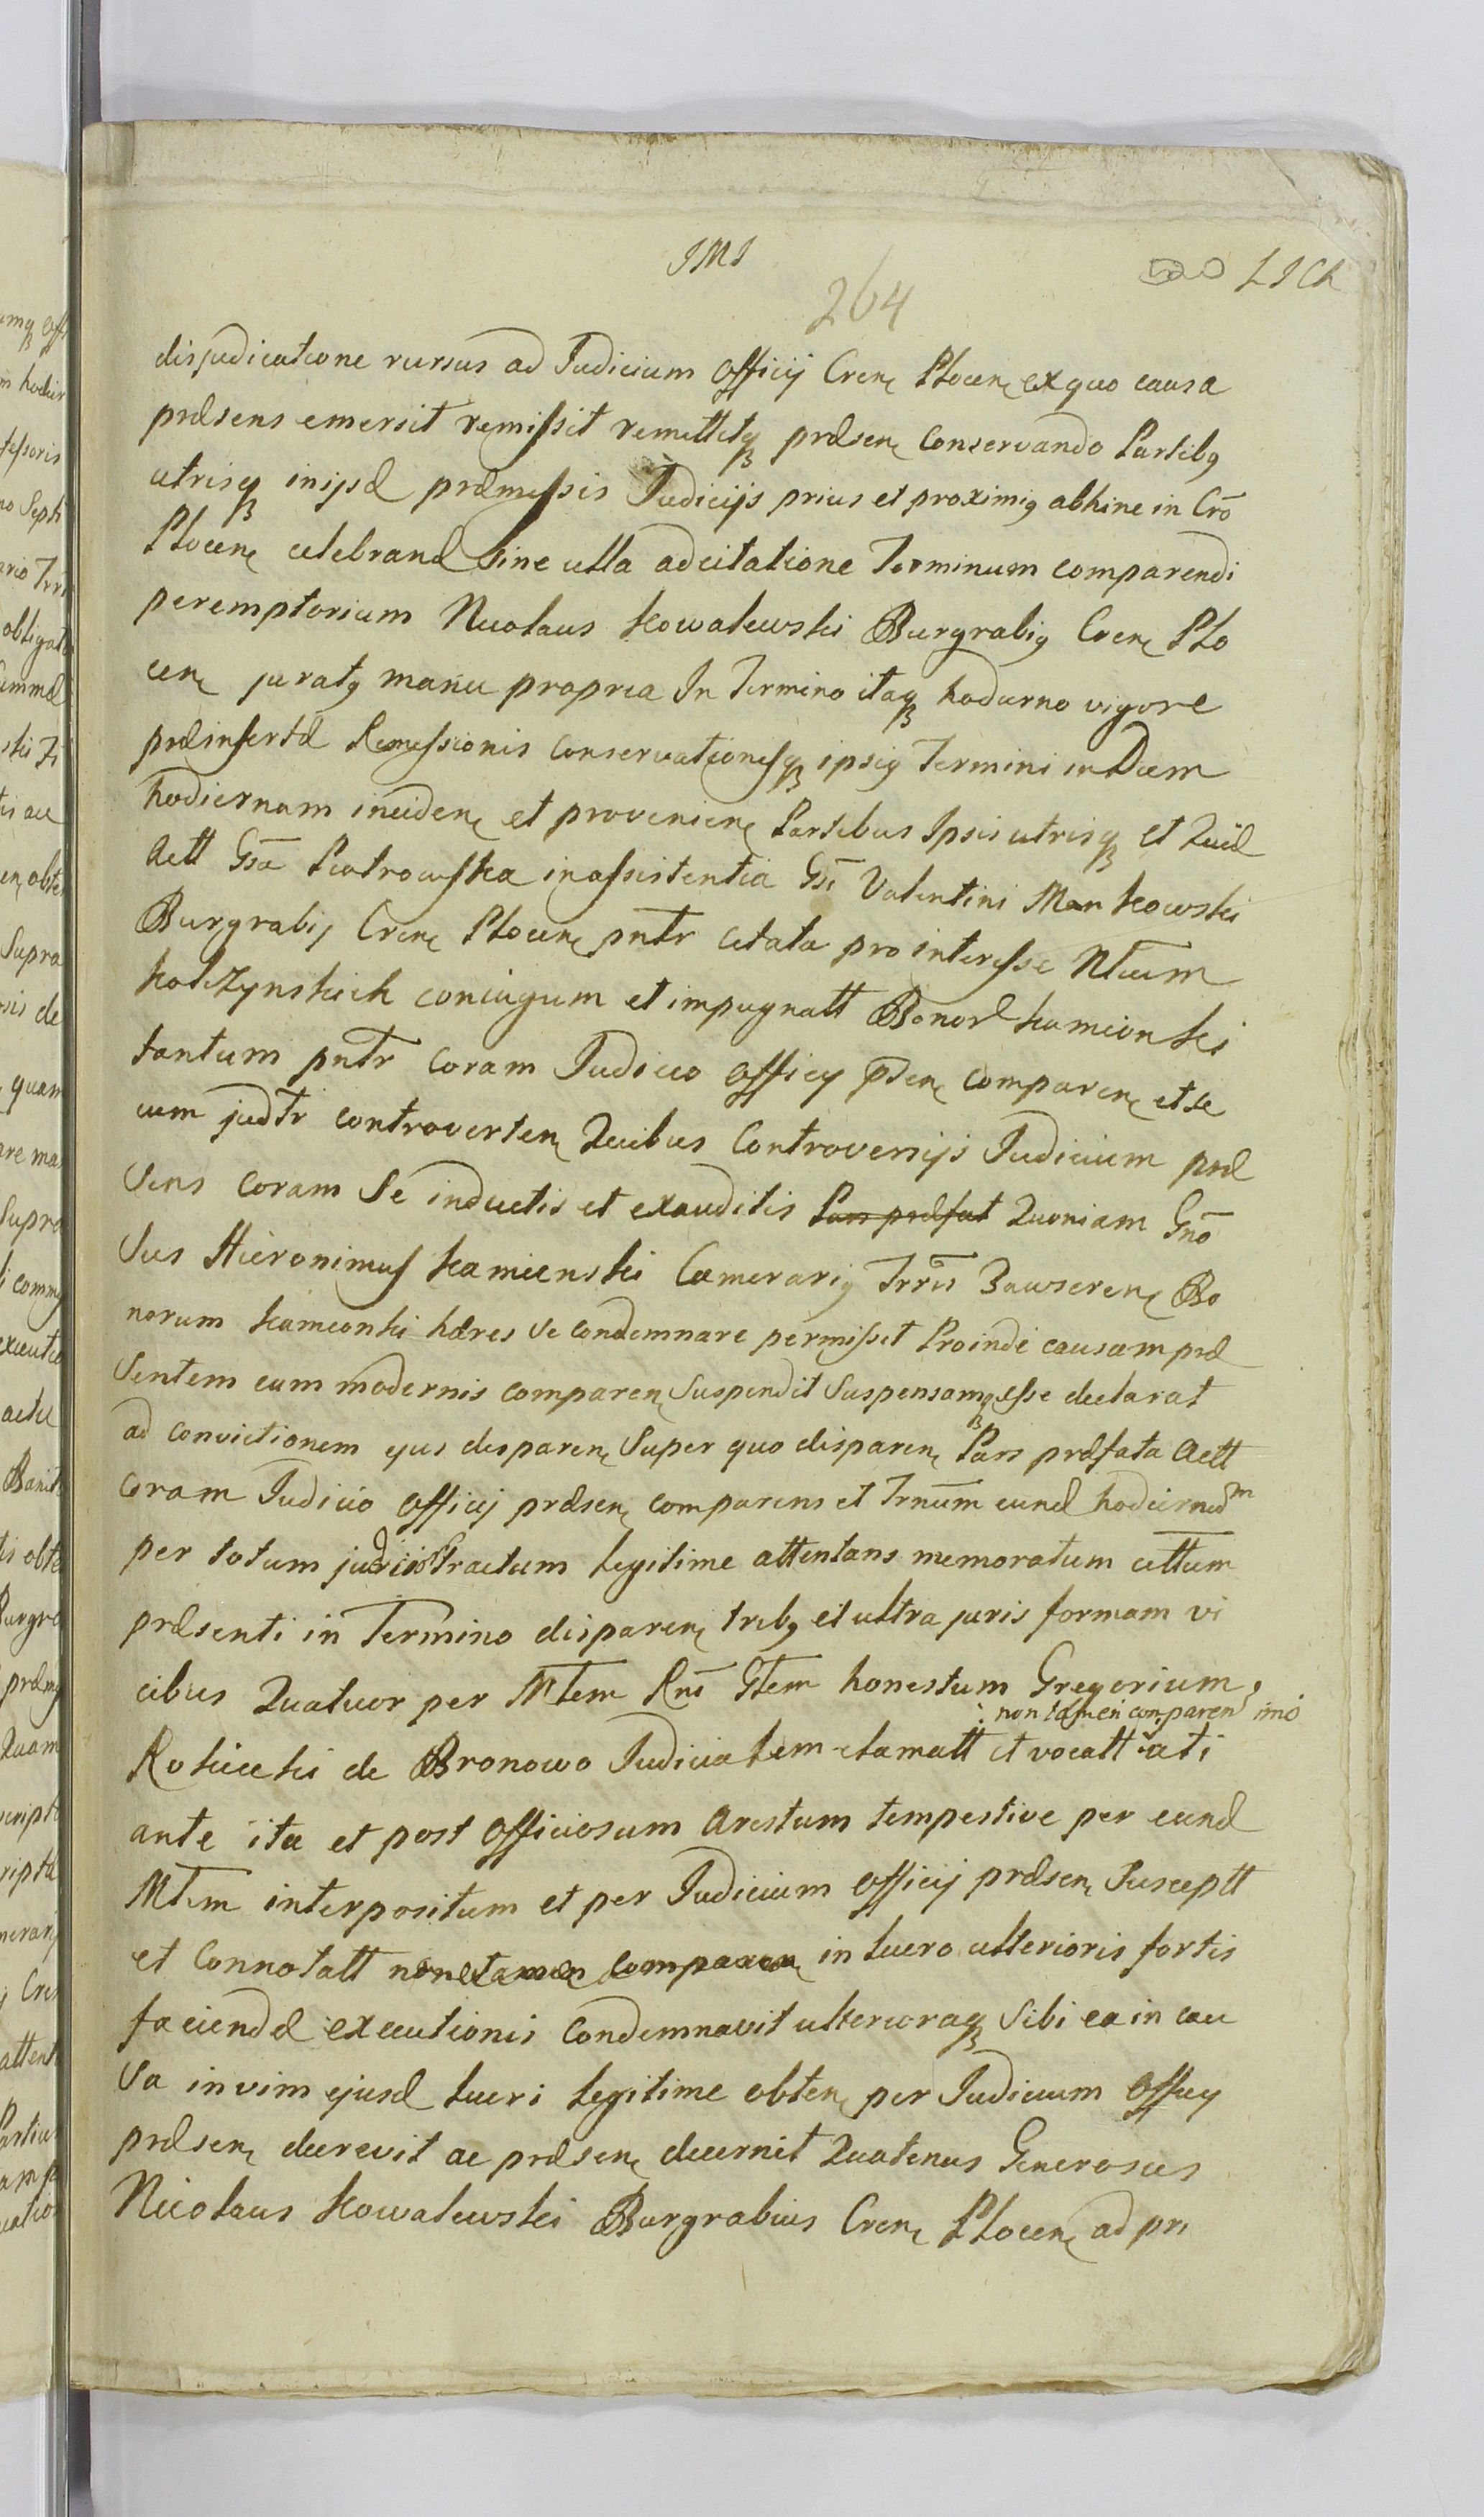 JMJ
264
520 LJCh
disjudicatione rursus ad Judicium Officij Cren Plocen ex quo causa
præsens emersit remissit remittitq præsen Conservando Partibq
utrisq in ijsd præmissis Judicijs prius et proximiq abhinc in Crō
Plocen celebrand Sine ulla adcitatione Terminum comparendi
peremptorium Nicolaus Kowalewski Burgrabiq Cren Plo
cen juratq manu propria In Termino itaq hodierno vigore
præinsertæ Remissionis Conservationisq ipsiq Termini in Diem
hodiernam inciden et provenien Partibus Ipsis utrisq et Quid
Actt Gsa Piotrowska in assistentia Gsi Valentini Mankowski
Burgrabij Cren Plocen pntr citata pro interesse Ntium
Kolczynskich coniugum et impugnatt Bonor Kamionki
tantum pntr Coram Judicio Officij pden Comparen et se
cum judtr controverten Quibus Controversijs Judicium præ
Sens Coram Se inductis et exauditis Pars præfat Quoniam Gnō
Sus Hieronimus Kamienski Camerariq Trris Zawseren Bo
norum Kamionki hæres Se Condemnare permisset Proinde causam præ
Sentem cum modernis Comparen Suspendit Suspensamq esse declarat
ad Convictionem ejus disparen Super quo disparen Pars præfata Actt
Coram Judicio Officij præsen Comparens et Trnum eund hodiernu m
per totum judicio Tractum Legitime attentans memoratum cittum
præsenti in Termino disparen tribq et ultra juris formam vi
cibus Quatuor per Mtem Rni Gtem honestum Gregorium
non tamen comparen imó
Rokicki de Bronowo Judicialem clamatt et vocatt uti
ante ita et post Officiosum Arestum tempestive per eund
Mtem interpositum et per Judicium Officij præsen Susceptt
et Connotatt non tamen Comparen in lucro ulterioris fortis
faciendæ executionis Condemnavit ulterioraq Sibi ea in cau
Sa in vim ejusd lucri Legitime obten per Judicium Officij
præsen decrevit ac præsen decernit Quatenus Generosus
Nicolaus Kowalewski Burgrabius Cren Plocen ad prı